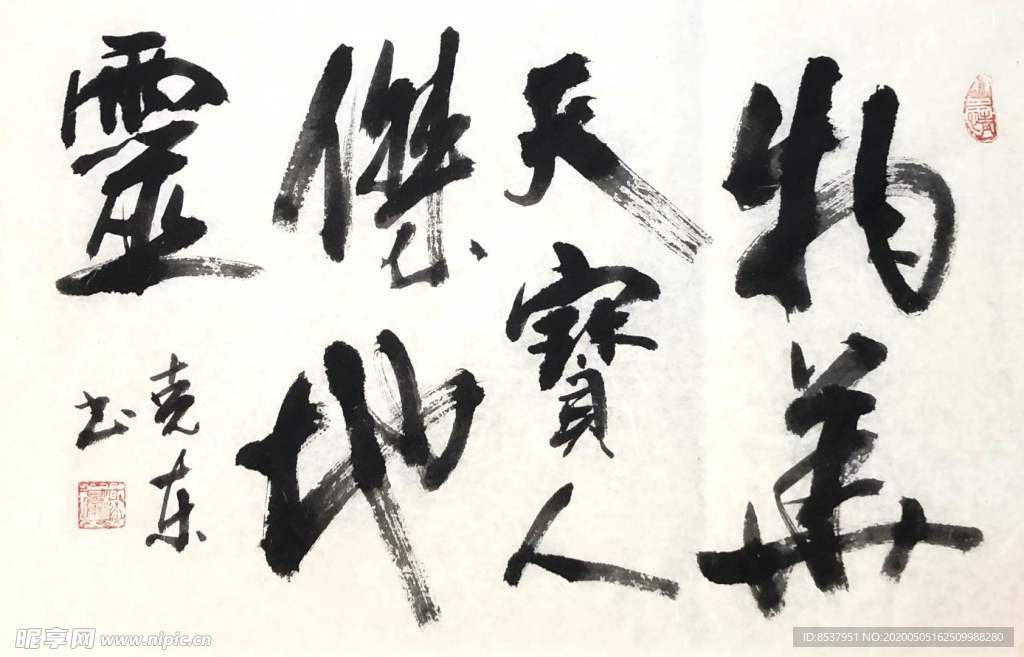 物華
天寶人
傑地
靈
克东
书
昵享网 www.nipic.cn
ID:8537951 NO:20200505162509988280